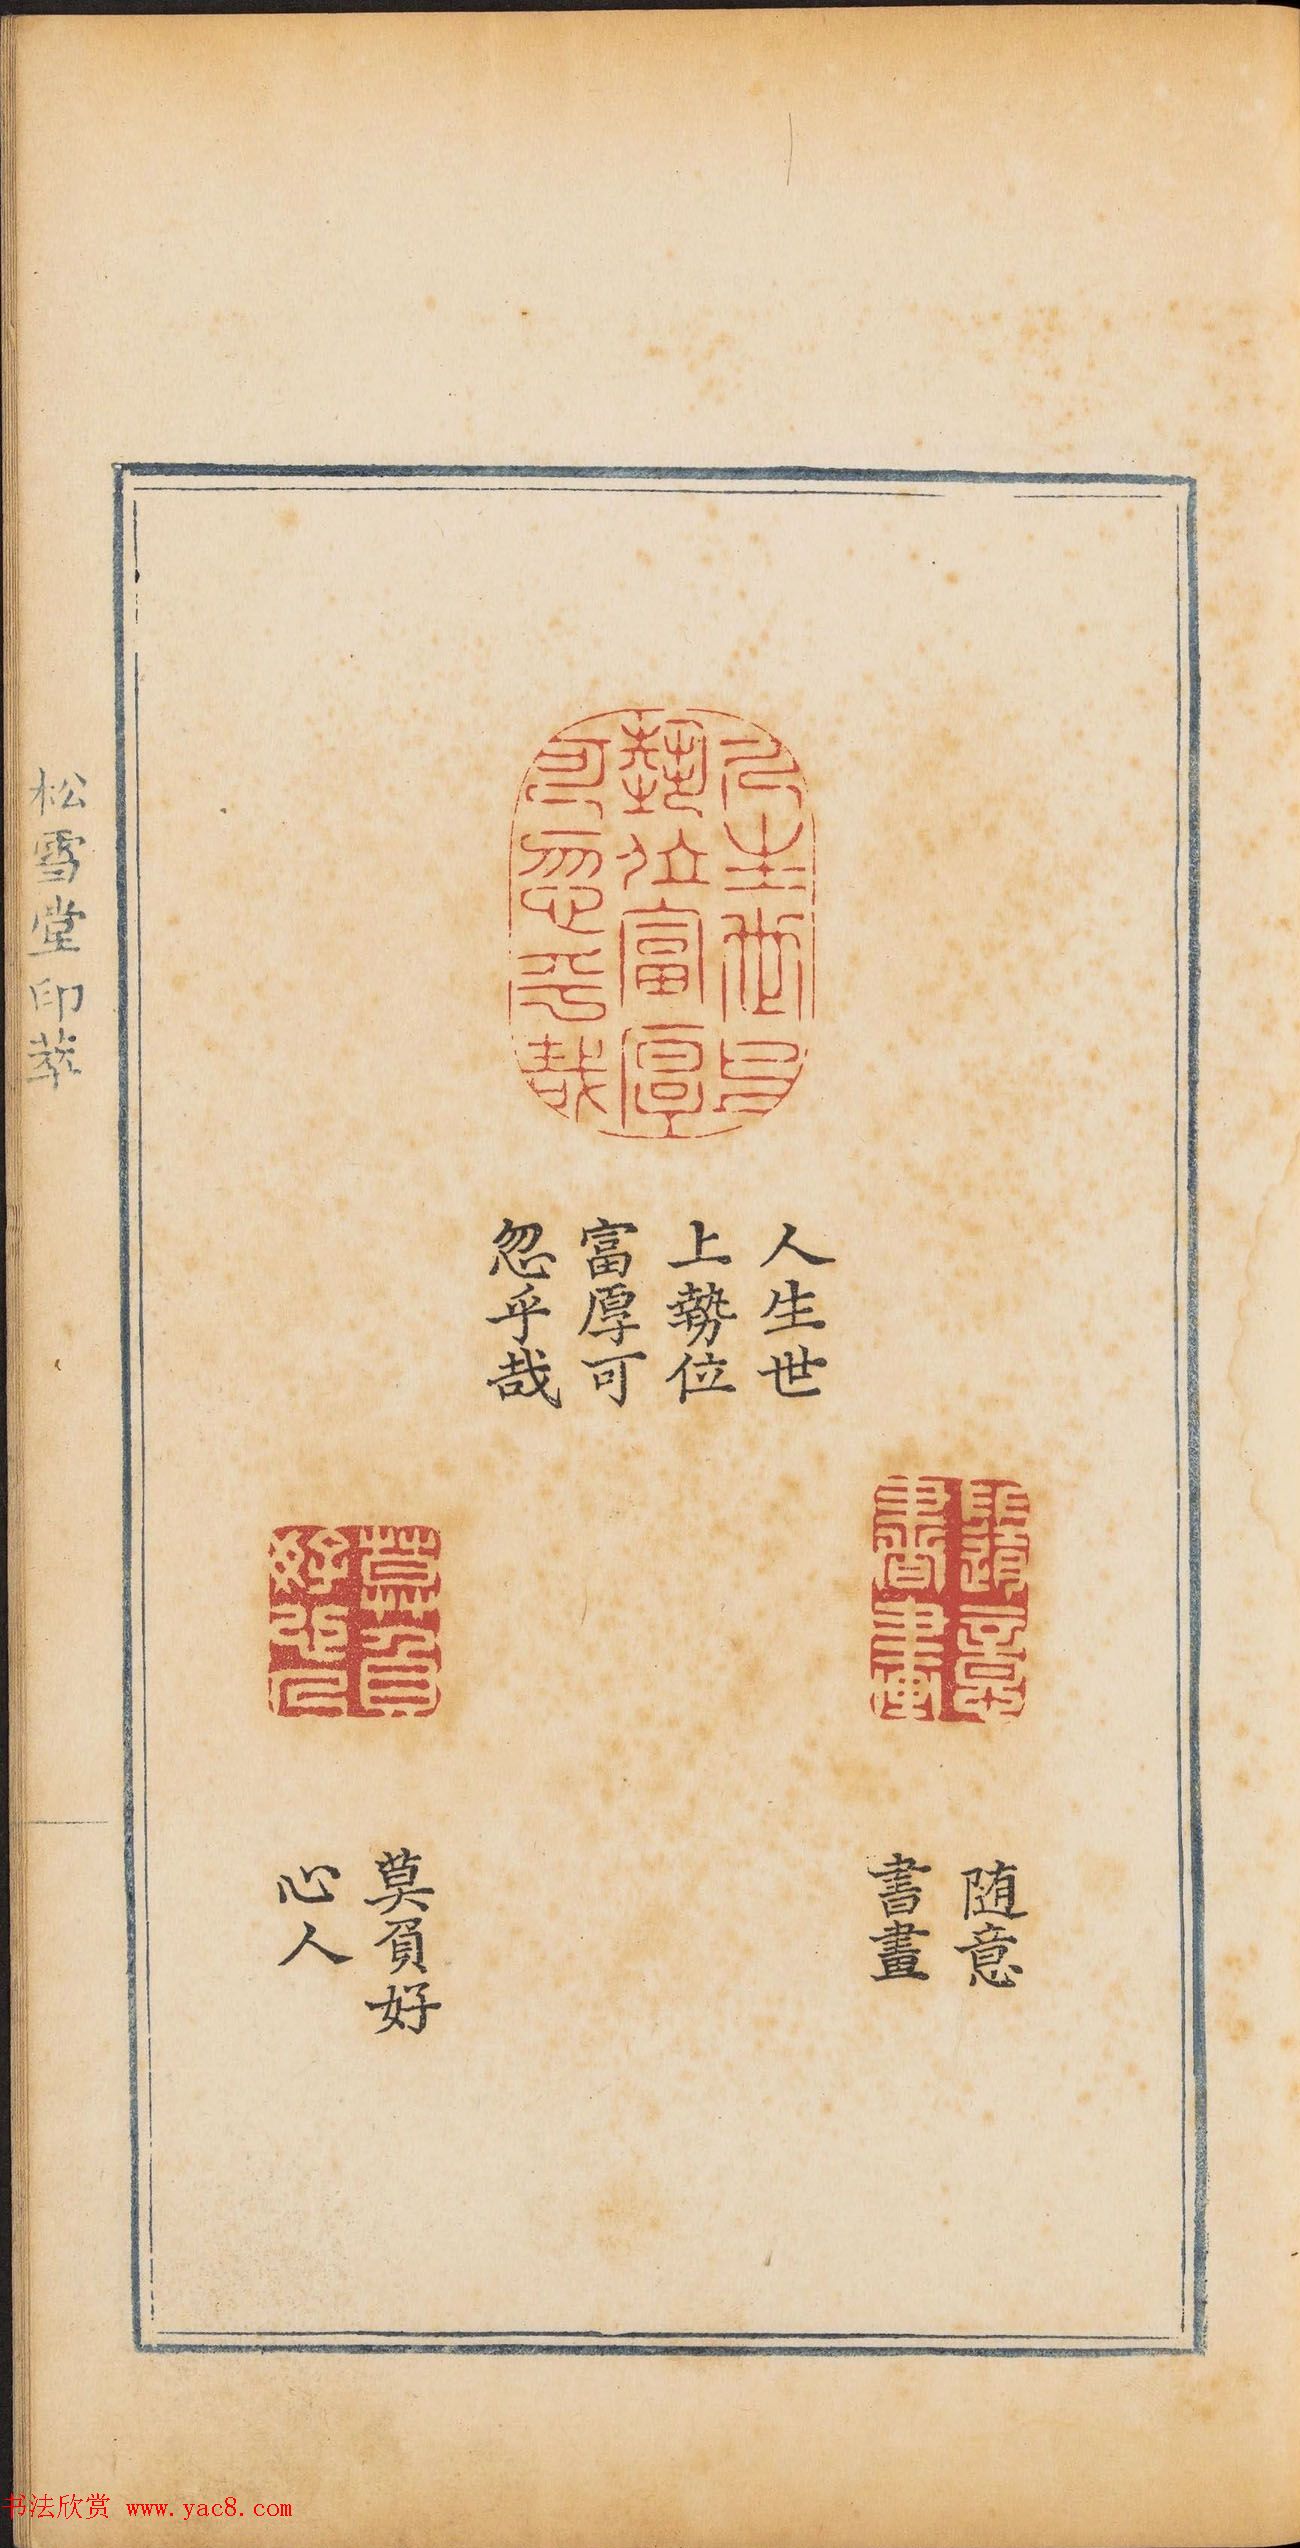 人生世
上勢位
富厚可
忽乎哉
随意
書畫
莫負好
心人
松雪堂印萃
书法欣赏 www.yac8.com